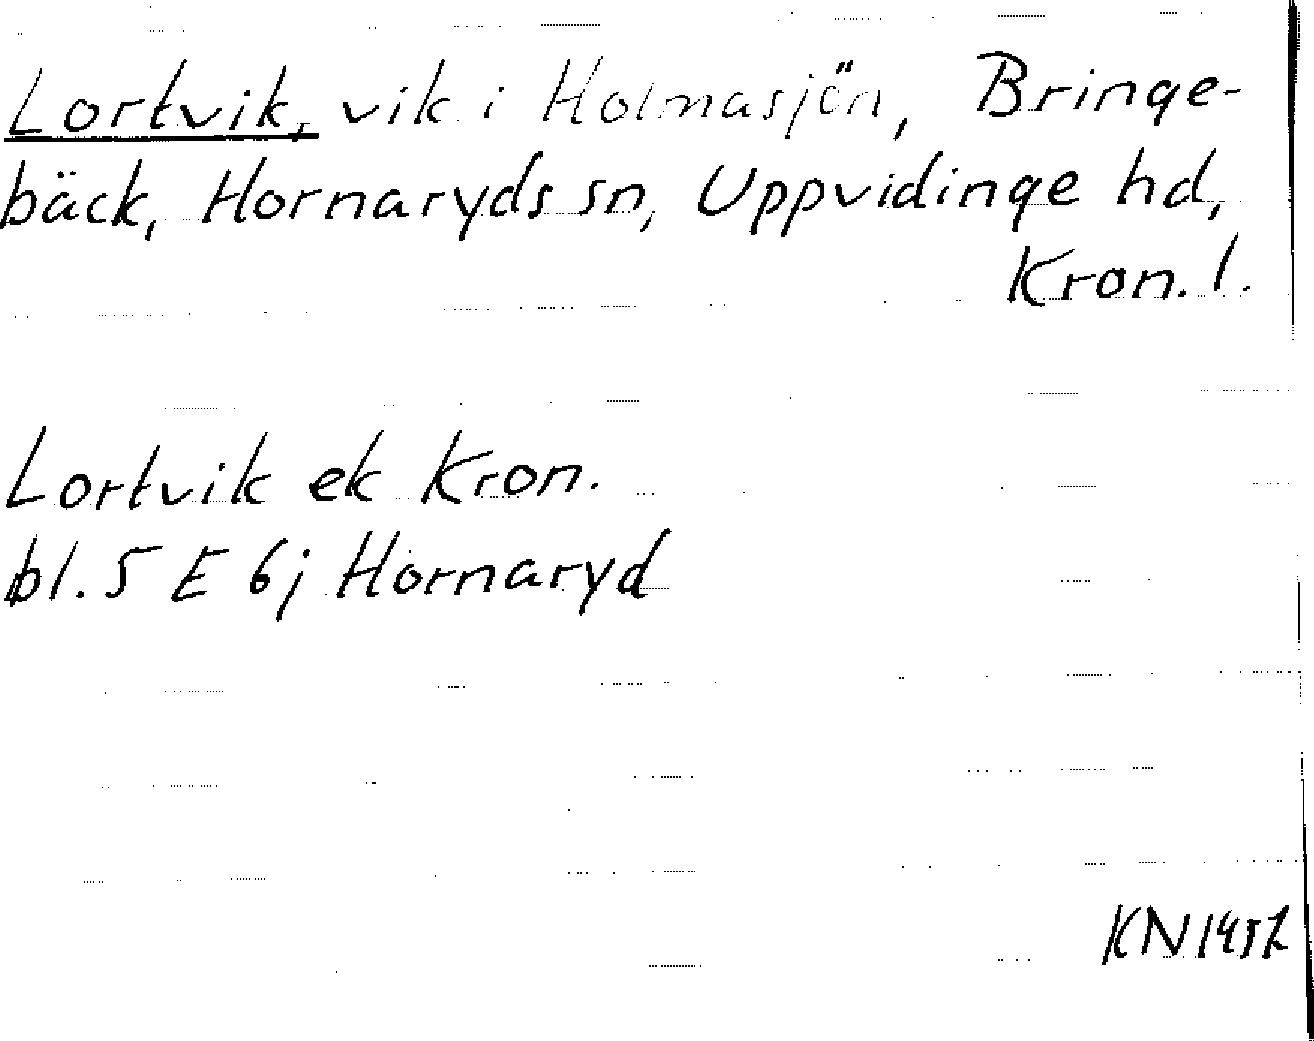 Lortvik, vik i Holmasjön, Bringe-
bäck, Hornaryds sn, Uppvidinge hd,
Kron. l.
Lortvik ek Kron.
bl. 5 E 6j Hornaryd
KN 1952